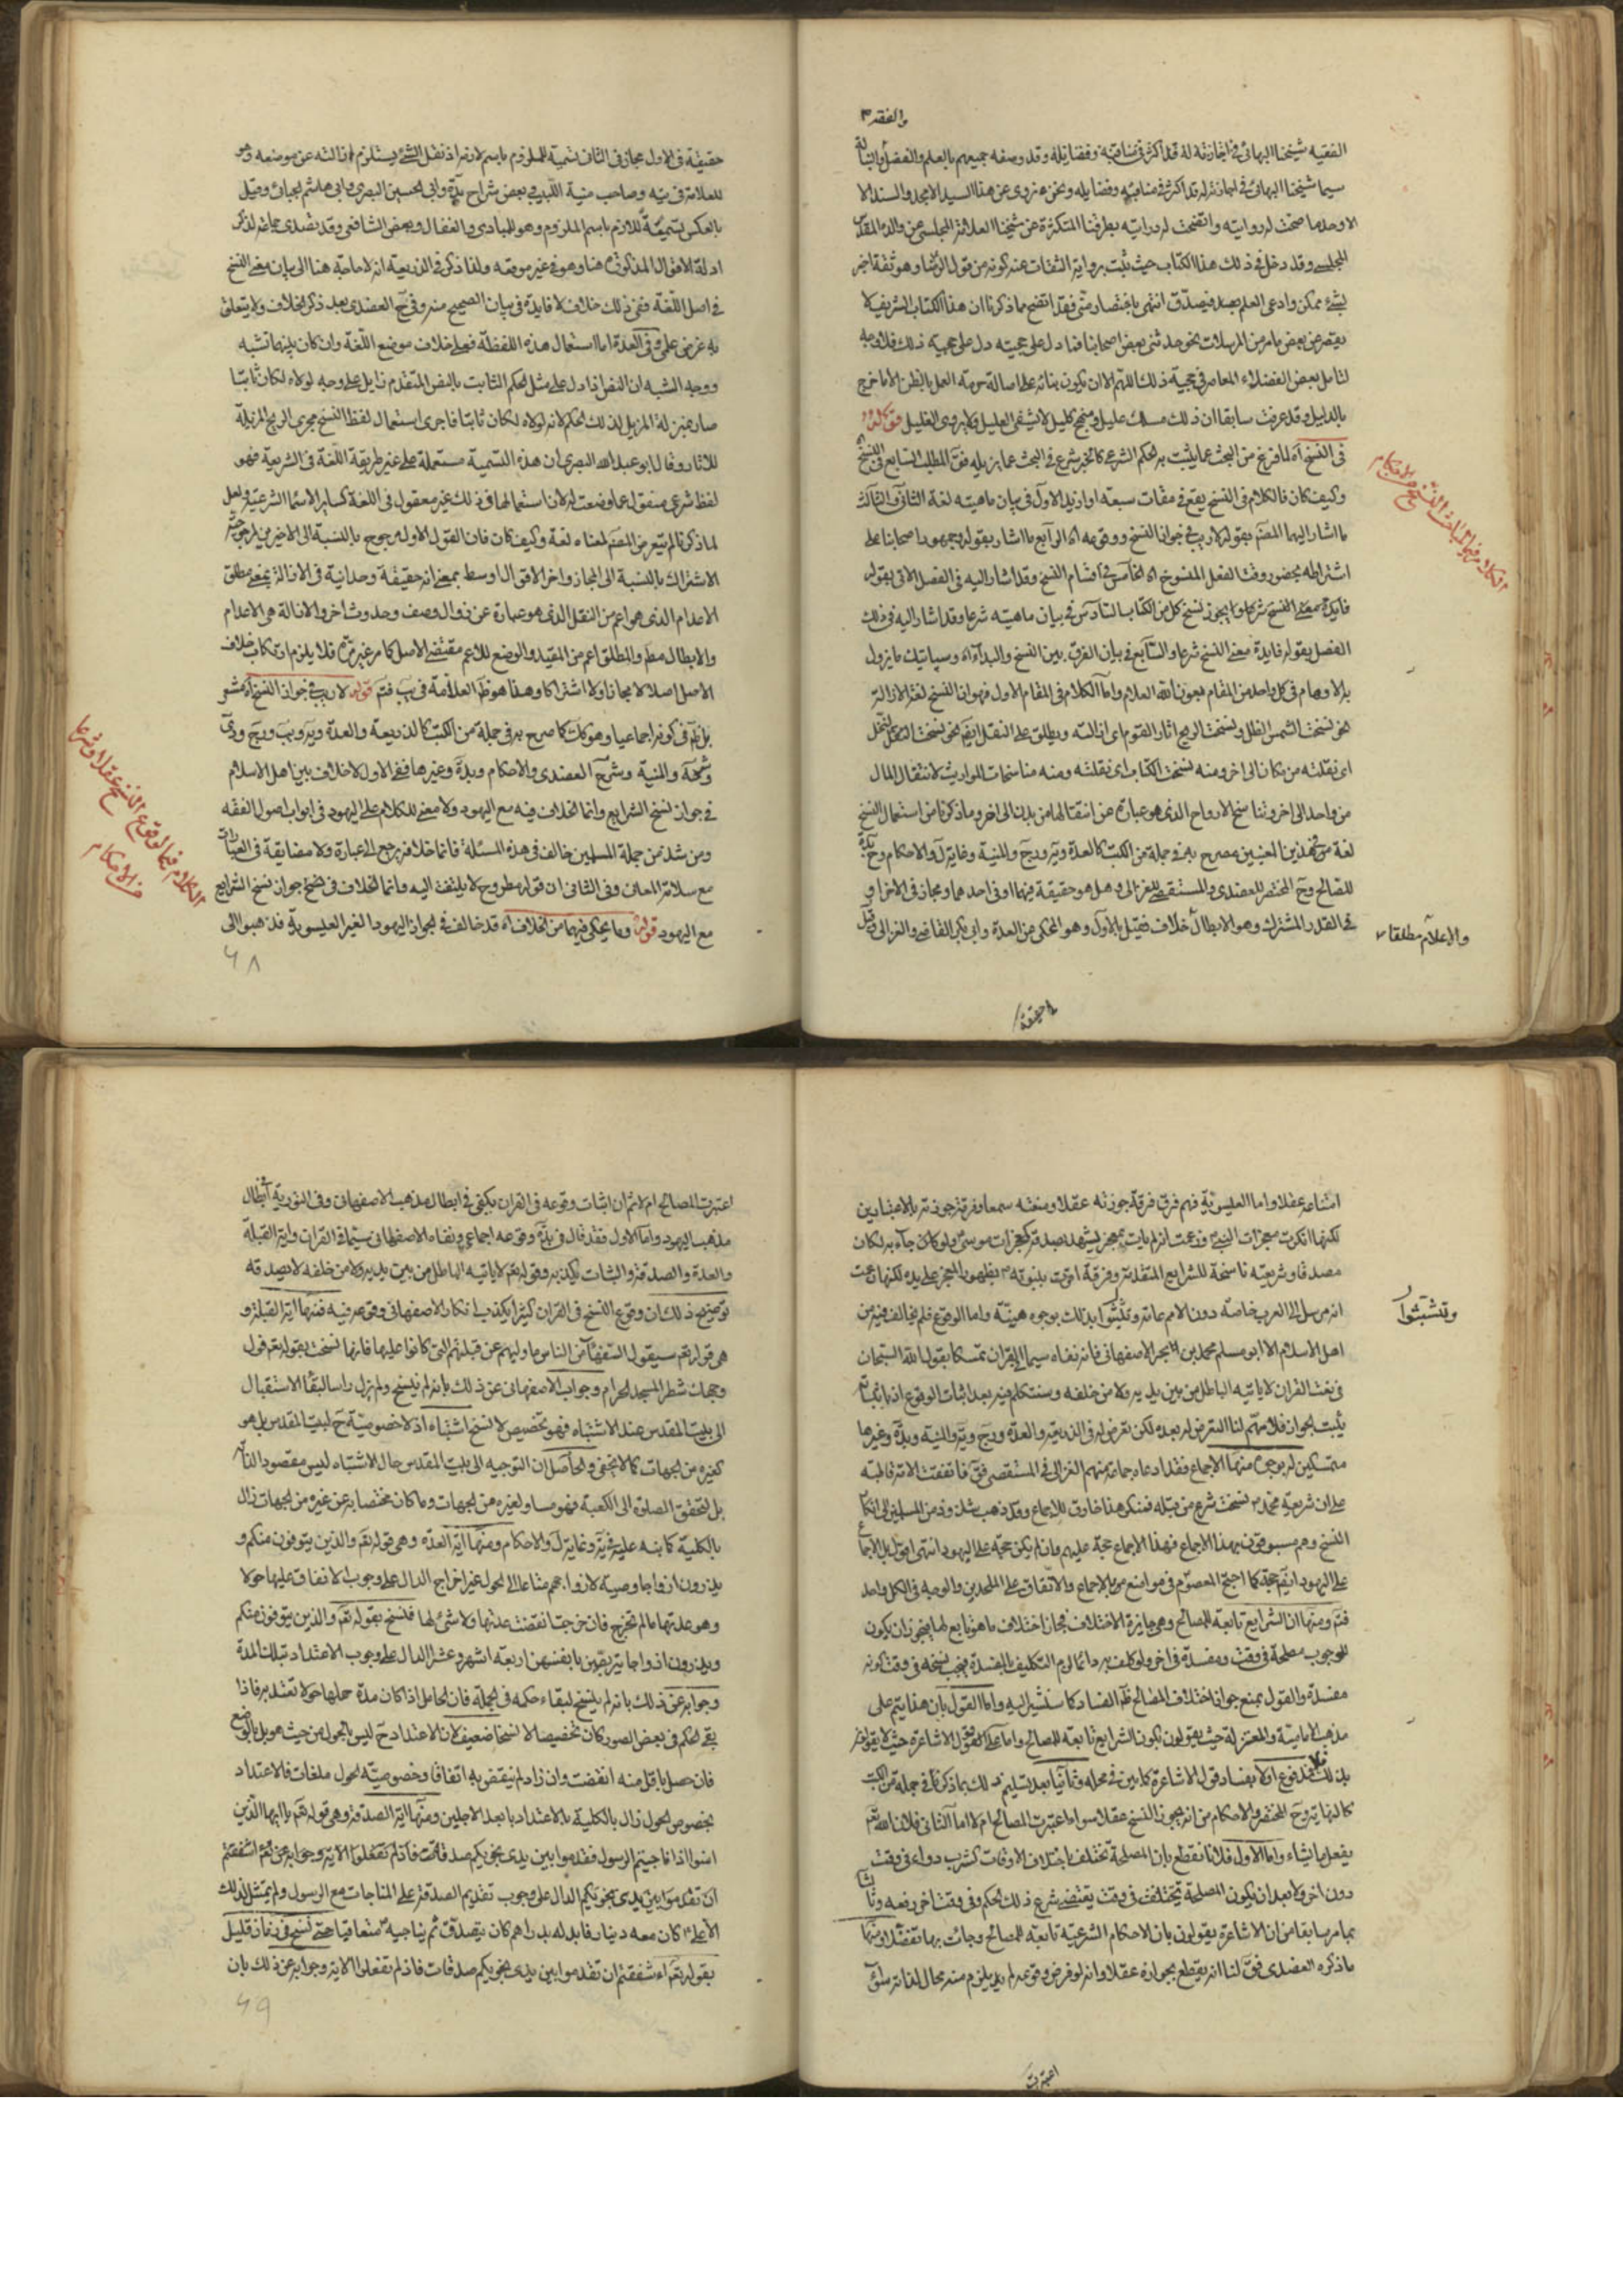 والفقه
الفقيه شيخنا البهائى فى اجازته له قد اكثر فى مناقبه وفضايله وقد وصفه جميعهم بالعلم والفضل
سيما شيخنا البهائى فى اجازته له قد اكثر فى مناقبه وفضايله ونحن نروى عن هذا السيد الامجد والسند الا
الاوحد ما صحت له روايته واتضحت له درايته بطرقنا المتكثرة عن شيخنا العلامة المجلسى عن والده المقدس
المجلسى وقد دخل فى ذلك هذا الكتاب حيث ثبت برواية الثقات عنه كونه من قول الرضا وهو ثقة اخبر
بشئ ممكن وادعى العلم به فيصدق انتهى باختصار منى فقد اتضح مما ذكرنا ان هذا الكتاب الشريف لا
يقصر عن بعض ما مر من المرسلات نحو حدثنى بعض اصحابنا فما دل على حجيته دل على حجية ذلك فلا وجه
لتامل بعض الفضلاء المعاصر فى حجية ذلك اللهم الا ان يكون بنائه على اصالة حرمة العمل بالظن الا ما خرج
بالدليل وقد عرفت سابقا ان ذلك مسلك عليل ومنهج كليل لا يشفى العليل ولا يروى الغليل قوله
فى النسخ اه لما فرغ من البحث عما يثبت به الحكم الشرعى كالخبر شرع فى البحث عما يزيله فقال المطلب السابع فى النسخ
وكيف كان فالكلام فى النسخ يقع فى مقامات سبعة او ازيد الاول فى بيان ماهيته لغة الثانى والثالث
ما اشار اليهما المصنف بقوله لا ريب فى جواز النسخ ووقوعه اه الرابع ما اشار بقوله وجمهور اصحابنا على
اشتراطه بحضور وقت الفعل المنسوخ اه الخامس فى اقسام النسخ وقد اشار اليه فى الفصل الاتى بقوله
فايدة معنى النسخ شرعا ويجوز نسخ كل من الكتاب السادس فى بيان ماهيته شرعا وقد اشار اليه فى ذلك
الفصل بقوله فايدة معنى النسخ شرعا والسابع فى بيان الفرق بين النسخ والبداء اه وسياتيك ما يزول
به الاوهام فى كل واحد من المقام بعون الله العلام واما الكلام فى المقام الاول فهو ان النسخ لغة الازالة
نحو نسخت الشمس الظل ونسخت الريح اثار القوم اى ازالته ويطلق على النقل ايضا نحو نسخت النحل
اى نقلته من مكان الى اخر ومنه نسخت الكتاب اى نقلته ومنه مناسخات المواريث لانتقال المال
من واحد الى اخر وتناسخ الارواح الذى هو عبارة عن انتقالها من بدن الى اخر وما ذكرنا من استعمال النسخ
لغة فى هذين المعنيين مصرح به فى جملة من الكتب كالعدة
للصالح وح المختصر للعضدى والمستقصى للغزالى وهل هو حقيقة فيهما او فى احدهما ومجاز فى الاخر او
فى القدر المشترك وهو الابطال خلاف فقيل بالاول وهو المحكى عن العدة وابى بكر القاضى والغزالى وقيل
والاعلام مطلقا
الكلام فى المباحث النسخ من الاحكام
حقيقة
حقيقة فى الاول مجاز فى الثانى تسمية للملزوم باسم لازمه اذ نقل الشئ يستلزم ازالته عن موضعه وهو
للعلامة فى يه وصاحب منية اللبيب فى بعض شراح يب وابى الحسين البصرى وابى هاشم الجبائى وقيل
بالعكس تسمية للازم باسم الملزوم وهو للبادى والقفال وبعض الشافعى وقد تصدى جماعة لذكر
ادلة الاقوال المذكورة هنا وهو فى غير موقعه ولذا ذكر فى الذريعة انه لا حاجة هنا الى بيان معنى النسخ
فى اصل اللغة ففى ذلك خلاف لا فايدة فى بيان الصحيح منه وفى ح العضدى بعد ذكر الخلاف ولا يتعلق
به غرض علمى وفى العدة اما استعمال هذه اللفظة فعلى خلاف موضع اللغة وان كان بينهما تشبه
ووجه الشبه ان النص اذا دل على مثل الحكم الثابت بالنص المتقدم زايل على وجه لولاه لكان ثابتا
صار بمنزلة المزيل لذلك الحكم لانه لولاه لكان ثابتا فاجرى استعمال لفظ النسخ مجرى الريح المزيلة
للاثار وقال ابو عبد الله البصرى ان هذه التسمية مستعملة على غير طريقة اللغة فى الشريعة فهو
لفظ شرعى منقول عما وضعت له لان استعمالها فى ذلك غير معقول فى اللغة كساير الاسماء الشرعية ولعل
لما ذكرنا لم يتعرض المصنف لمعناه لغة وكيف كان فان القول الاول مرجوح بالنسبة الى الاخيرين لمرجوحية
الاشتراك بالنسبة الى المجاز واخر الاقوال اوسط بمعنى انه حقيقة وحدانية فى الازالة بمعنى مطلق
الاعدام الذى هو اعم من النقل الذى هو عبارة عن زوال وصف وحدوث اخر والازالة هى الاعدام
والابطال مطلقا والمطلق اعم من المقيد والوضع للاعم مقتضى الاصل كما مر غير مرة فلا يلزم ارتكاب خلاف
الاصل اصلا لا مجازا ولا اشتراكا وهذا هو ظاهر العلامة فى يب فتم قوله لا ريب فى جواز النسخ اه مشعر
بل ظاهر فى كونه اجماعيا وهو كك كما صرح به فى جملة من الكتب كالذريعة والعدة
والمنية وشرح العضدى والاحكام وبدة وغيرها ففى الاول لا خلاف بين اهل الاسلام
فى جواز نسخ الشرايع وانما الخلاف فيه مع اليهود ولا معنى للكلام على اليهود فى ابواب اصول الفقه
ومن شذ من جملة المسلمين خالف فى هذه المسئلة فانما خلافه يرجع الى عبارة ولا مضايقة فى العبارات
مع سلامة المعانى وفى الثانى ان قوله مطروح لا يلتفت اليه وانما الخلاف فى نسخ جواز نسخ الشرايع
مع اليهود قوله وما يحكى فيهما من الخلاف اه قد خالف فى الجواز اليهود الغير العيسوية فذهبوا الى
الكلام فيما وقوع النسخ عقلا وشرعا
من الاحكام
٦٨
امتناعه عقلا واما العيسوية فهم فرق فرقة جوزته عقلا ومنعته سمعا وفرقة جوزته بالاعتبارين
لكنها انكرت معجزات النبى وزعمت انه لم يات بمعجز يشهد بصدقه كمعجزات موسى ولو كان جاء به لكان
مصدقا وشريعته ناسخة للشرايع المتقدمة وفرقة اقرت بنبوته بظهور المعجز على يده لكنها زعمت
انه مرسل الى العرب خاصة دون الامم عامة وتشبثوا بذلك بوجوه هينة واما الوقوع فلم يخالف فيه من
وتشبثوا
اهل الاسلام الا ابو مسلم محمد بن البحر الاصفهانى فانه نفاه سيما القران تمسكا بقول الله السبحان
فى نعت القران لا ياتيه الباطل من بين يديه ولا من خلفه وسنتكلم فيه بعد اثبات الوقوع اذ باثباته
يثبت الجواز فلا مهم لنا التعرض له بعده لكن تعرض له فى الذريعة والعدة وغيرها
متمسكين له بوجوه منها الاجماع فقد ادعاه جماعة منهم الغزالى فى المستقصى فقال فاتفقت الامة قاطبة
على ان شريعة محمد نسخت شرع من قبله فمنكر هذا خارق للاجماع وقد ذهب شذوذ من المسلمين الى انكار
النسخ وهم مسبوقون بهذا الاجماع فهذا الاجماع حجة عليهم وان لم يكن حجة على اليهود انتهى اقول بل الاجماع
على اليهود ايضا حجة كما احتج المعصوم فى مواضع من الاجماع والاتفاق على الملحدين والوجه فى الكل واحد
فتم ومنها ان الشرايع تابعة للمصالح وهى جايزة الاختلاف فجاز اختلاف ما هو تابع لها فيجوز ان يكون
للوجوب مصلحة فى وقت ومفسدة فى اخر ولو كلف به دائما لزم التكليف بالمفسدة فيجب نسخه فى وقت كونه
مفسدة والقول بمنع جواز اختلاف المصالح ظاهر الفساد كما سنشير اليه واما القول بان هذا يتم على
مذهب الامامية والمعتزلة حيث يقولون بكون الشرايع تابعة للمصالح واما على قول الاشاعرة حيث لا يقولون
بذلك فلا فمدفوع اولا بفساد قول الاشاعرة كما بين فى محله وثانيا بعد تسليم ذلك بما ذكرنا فى جملة من الكتب
كالنهاية وح المختصر والاحكام من انه يجوز النسخ عقلا سواء اعتبرت المصالح ام لا اما الثانى فلان الله تعالى
يفعل ما يشاء واما الاول فلانا نقطع بان المصلحة تختلف باختلاف الاوقات كشرب دواء فى وقت
دون اخر ولا بعد ان يكون المصلحة تختلف فى وقت يقتضى شرع ذلك الحكم وفى وقت اخر رفعه وثالثا
بما مر سابقا من ان الاشاعرة يقولون بان الاحكام الشرعية تابعة للمصالح وجائت بها تفضلا ومنها
ما ذكره العضدى فقال لنا انه يقطع بجوازه عقلا وانه لو فرض وقوعه لم يلزم منه محال لذاته سواء
اعتبرت
اعتبرت المصالح ام لا ثم ان اثبات وقوعه فى القران يكفى فى ابطال مذهب الاصفهانى وفى التورية فى ابطال
مذهب اليهود واما الاول فقد قال فى بدة وقوعه اجماعى ونفاه الاصفهانى سيما فى القران واية القبلة
والعدة والصدقة والثبات يكذبه وقوله تعالى لا ياتيه الباطل من بين يديه ولا من خلفه لا يصدقه
توضيح ذلك ان وقوع النسخ فى القران كثيرا يكذب انكار الاصفهانى وقوعه فيه فمنها اية القبلة و
هى قوله تعالى سيقول السفهاء من الناس ما وليهم عن قبلتهم التى كانوا عليها فانها نسخت بقوله تعالى فول
وجهك شطر المسجد الحرام وجواب الاصفهانى عن ذلك بانه لم ينسخ ولم يزل راسا لبقاء الاستقبال
الى بيت المقدس عند الاشتباه فهو تخصيص لا نسخ اشتباه اذ لا خصوصية ح لبيت المقدس بل هو
كغيره من الجهات كما لا يخفى والحاصل ان التوجه الى بيت المقدس حال الاشتباه ليس مقصودا لذاته
بل لتحقق الصلوة الى الكعبة فهو مساو لغيره من الجهات وما كان مختصا به عن غيره من الجهات زال
بالكلية كما نبه عليه فى يه وغاية ل والاحكام ومنها اية العدة وهى قوله تعالى والذين يتوفون منكم و
يذرون ازواجا وصية لازواجهم متاعا الى الحول غير اخراج الدال على وجوب الانفاق عليها حولا
وهو عدتها ما لم تخرج فان خرجت انقضت عدتها ولا شئ لها فنسخ بقوله تعالى والذين يتوفون منكم
ويذرون ازواجا يتربصن بانفسهن اربعة اشهر وعشرا الدال على وجوب الاعتداد بتلك المدة
وجوابه عن ذلك بانه لم ينسخ لبقاء حكمه فى الجملة فان الحامل اذا كان مدة حملها حولا تعتد به فاذا
بقى الحكم فى بعض الصور كان تخصيصا لا نسخا ضعيف لان الاعتداد ح ليس بالحول من حيث هو بل بالوضع
فان حصل باقل منه انقضت وان زاد لم ينقض به اتفاقا وخصوصية الحول ملغات فالاعتداد
بخصوص الحول زال بالكلية بالاعتداد بابعد الاجلين ومنها اية الصدقة وهى قوله تعالى يا ايها الذين
امنوا اذا ناجيتم الرسول فقدموا بين يدى نجويكم صدقات فاذ لم تفعلوا الاية وجوابه عن ءاشفقتم
ان تقدموا بين يدى نجويكم الدال على وجوب تقديم الصدقة على المناجات مع الرسول ولم يمتثل لذلك
الا على كان معه دينار فابدله بدراهم كان يتصدق ثم يناجيه متعاقبا حتى نسخ فى زمان قليل
بقوله تعالى ءاشفقتم ان تقدموا بين يدى نجويكم صدقات فاذ لم تفعلوا الاية وجوابه عن ذلك بان
٦٩